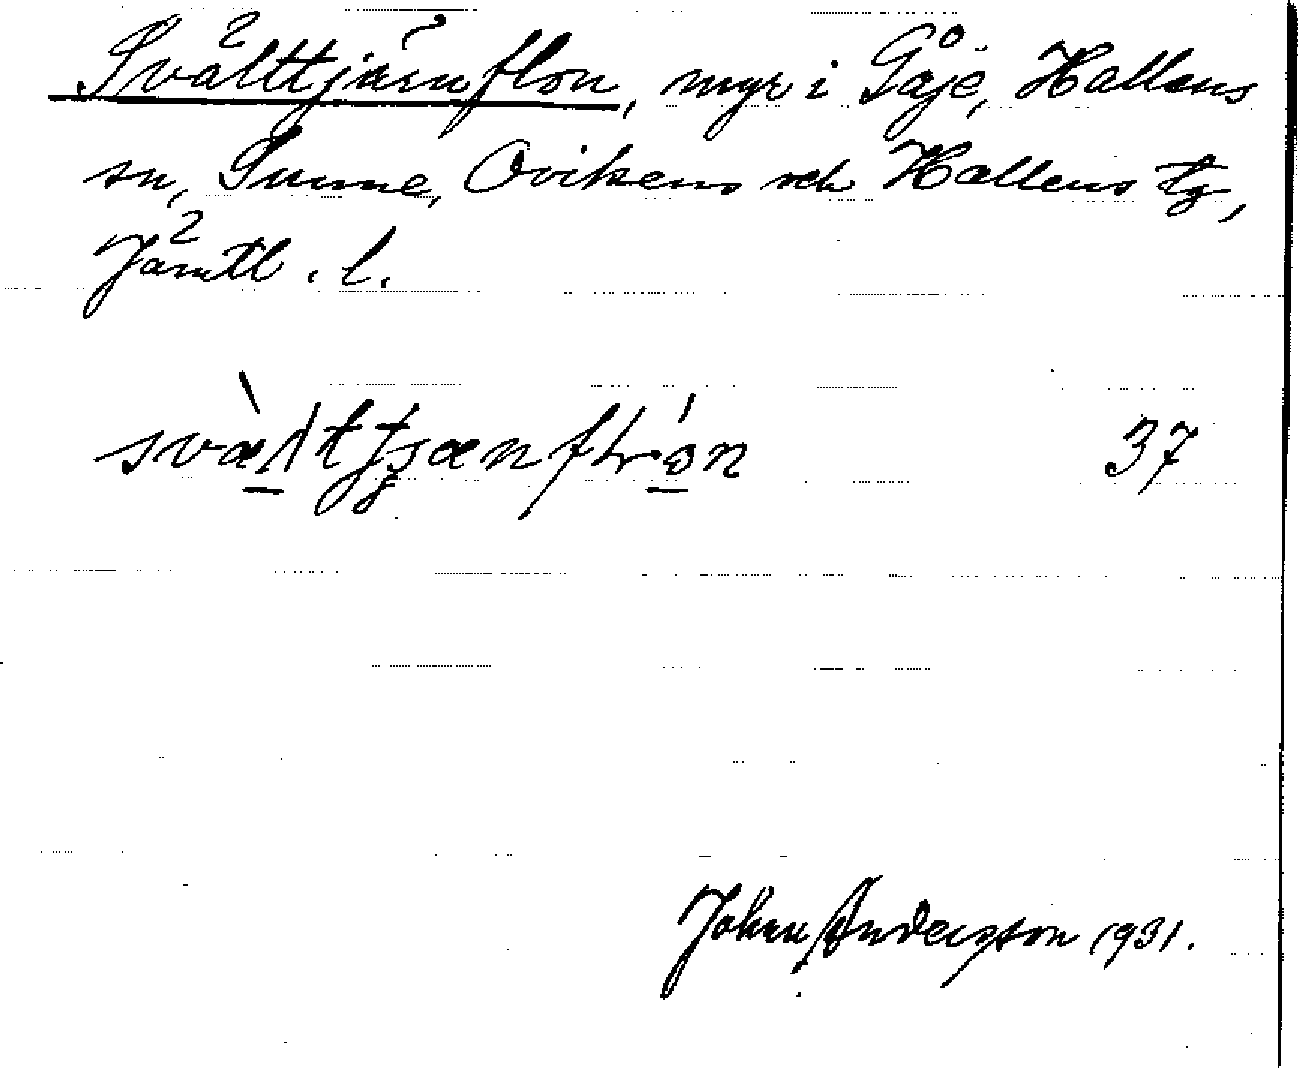 Svälttjärnflon, myr i Gåje, Hallens
sn, Sunne, Ovikens och Hallens tg,
Jämtl. l.
37
Johan Andersson 1931.